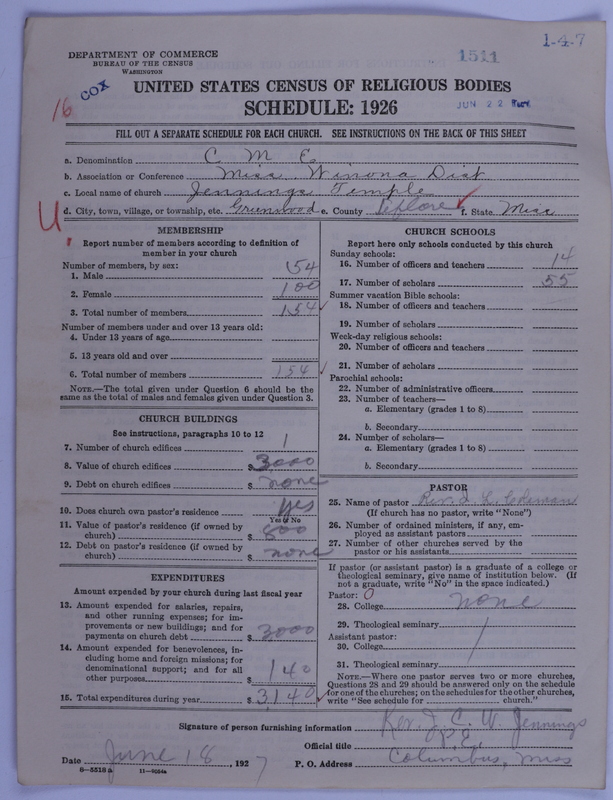 1-4-7
1511
DEPARTMENT OF COMMERCE
BUREAU OF THE CENSUS
WASHINGTON
16 COX
UNITED STATES CENSUS OF RELIGIOUS BODIES
SCHEDULE: 1926
JUN 22
FILL OUT A SEPARATE SCHEDULE FOR EACH CHURCH. SEE INSTRUCTIONS ON THE BACK OF THIS SHEET
a. Denomination C M E
b. Association or Conference Miss. Winona Dist
c. Local name of church Jennings Temple
U d. City, town, village, or township, etc. Greenwood e. County Leflore f. State Miss
MEMBERSHIP
Report number of members according to definition of
member in your church
Number of members, by sex:
1. Male 54
2. Female 100
3. Total number of members 154
Number of members under and over 13 years old:
4. Under 13 years of age
5. 13 years old and over
6. Total number of members 154
NOTE.—The total given under Question 6 should be the
same as the total of males and females given under Question 3.
CHURCH BUILDINGS
See instructions, paragraphs 10 to 12
7. Number of church edifices 1
8. Value of church edifices $ 3000
9. Debt on church edifices $ none
10. Does church own pastor's residence yes
Yes or No
11. Value of pastor's residence (if owned by
church) $ 800
12. Debt on pastor's residence (if owned by
church) $ none
EXPENDITURES
Amount expended by your church during last fiscal year
13. Amount expended for salaries, repairs,
and other running expenses; for im-
provements or new buildings; and for
payments on church debt $ 3000
14. Amount expended for benevolences, in-
cluding home and foreign missions; for
denominational support; and for all
other purposes $ 140
15. Total expenditures during year $ 3,140
CHURCH SCHOOLS
Report here only schools conducted by this church
Sunday schools:
16. Number of officers and teachers 14
17. Number of scholars 55
Summer vacation Bible schools:
18. Number of officers and teachers
19. Number of scholars
Week-day religious schools:
20. Number of officers and teachers
21. Number of scholars
Parochial schools:
22. Number of administrative officers
23. Number of teachers—
a. Elementary (grades 1 to 8)
b. Secondary
24. Number of scholars—
a. Elementary (grades 1 to 8)
b. Secondary
PASTOR
25. Name of pastor Rev. J. L. Coleman
(If church has no pastor, write "None")
26. Number of ordained ministers, if any, em-
ployed as assistant pastors
27. Number of other churches served by the
pastor or his assistants
If pastor (or assistant pastor) is a graduate of a college or
theological seminary, give name of institution below. (If
not a graduate, write "No" in the space indicated.)
Pastor: 0
28. College none
29. Theological seminary
Assistant pastor:
30. College
31. Theological seminary
NOTE.—Where one pastor serves two or more churches,
Questions 28 and 29 should be answered only on the schedule
for one of the churches; on the schedules for the other churches,
write "See schedule for church."
Signature of person furnishing information Rev. J. C. W. Jennings
Official title P. E.
Date June 18, 1927 P. O. Address Columbus, Miss
8-5516a 11-9054a